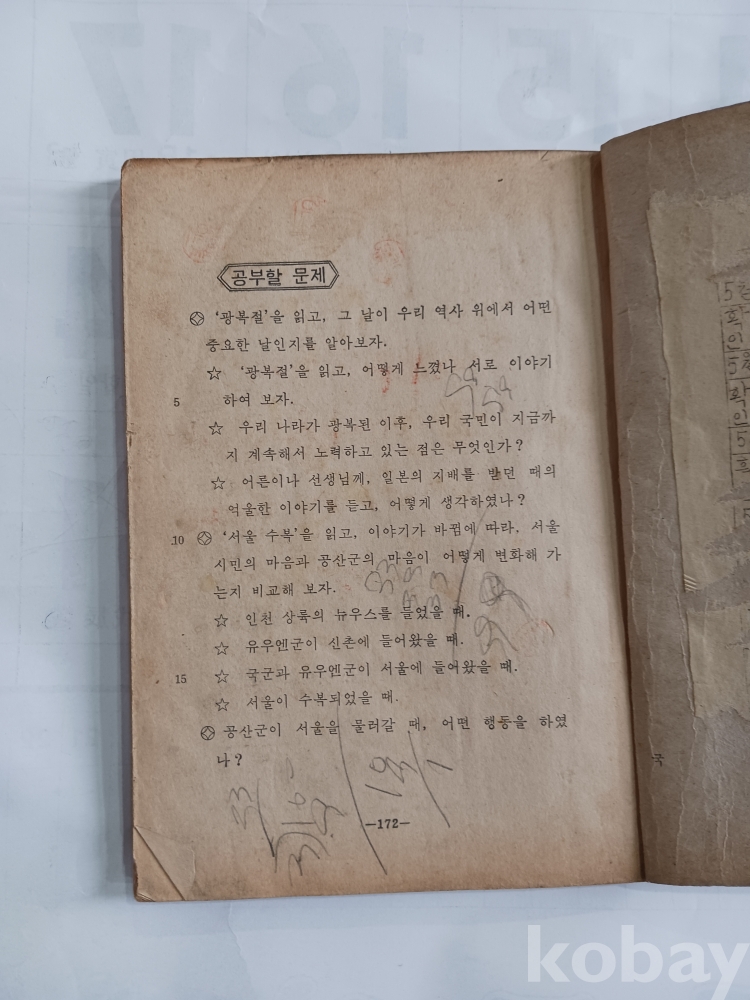 공부할 문제
'광복절'을 읽고, 그 날이 우리 역사 위에서 어떤
중요한 날인지를 알아보자.
☆ '광복절'을 읽고, 어떻게 느꼈나 서로 이야기
5 하여 보자.
☆ 우리 나라가 광복된 이후, 우리 국민이 지금까
지 계속해서 노력하고 있는 점은 무엇인가?
☆ 어른이나 선생님께, 일본의 지배를 받던 때의
억울한 이야기를 듣고, 어떻게 생각하였나?
10 '서울 수복'을 읽고, 이야기가 바뀜에 따라, 서울
시민의 마음과 공산군의 마음이 어떻게 변화해 가
는지 비교해 보자.
☆ 인천 상륙의 뉴우스를 들었을 때.
☆ 유우엔군이 신촌에 들어왔을 때.
15 ☆ 국군과 유우엔군이 서울에 들어왔을 때.
☆ 서울이 수복되었을 때.
공산군이 서울을 물러갈 때, 어떤 행동을 하였
나?
—172—
국
kobay